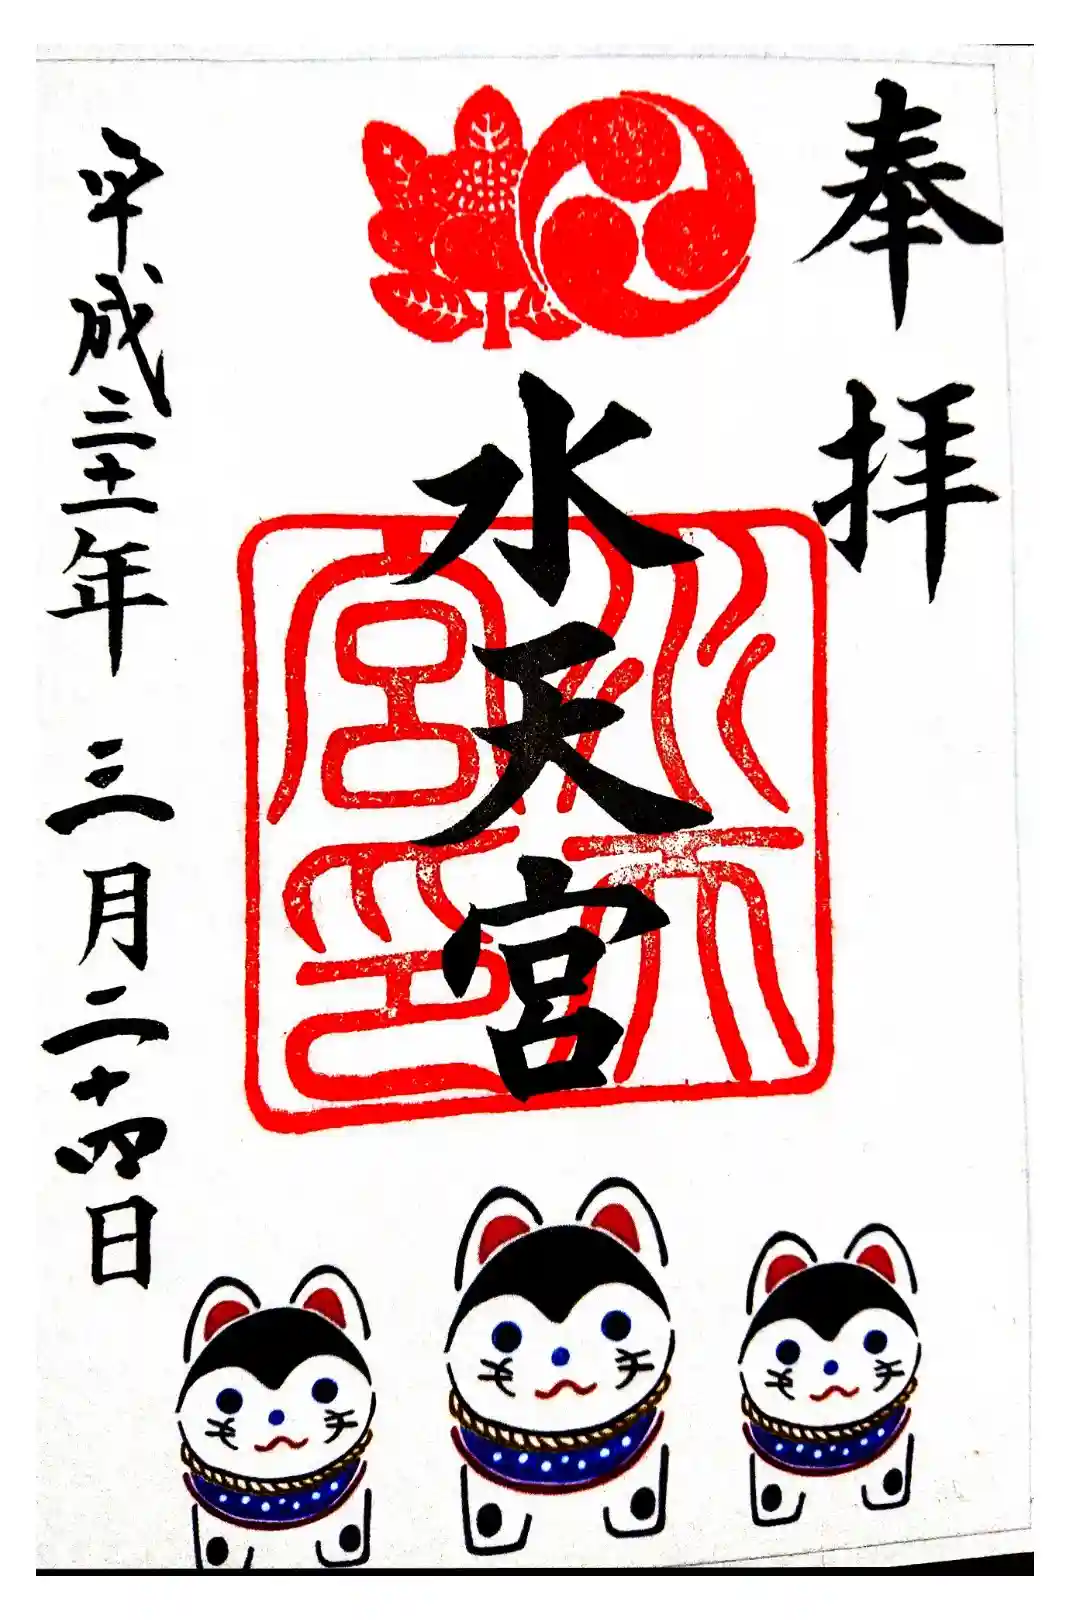 奉拝
水天宮
水天宮印
平成三十一年 三月二十四日